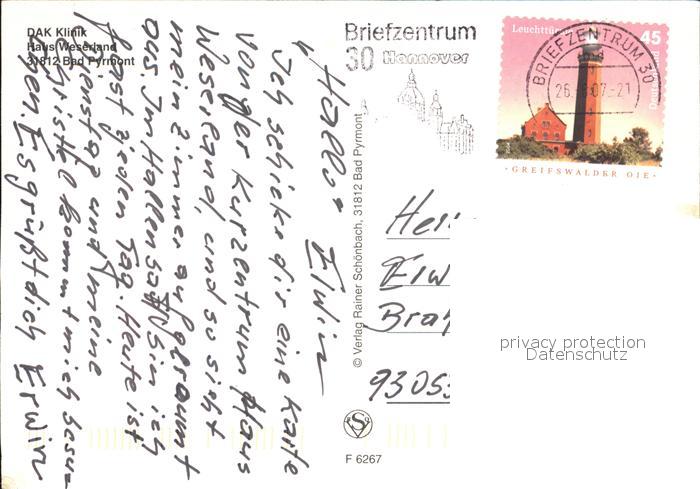 DAK Klinik
Haus Weserland
31812 Bad Pyrmont
Hallo Elwin
Ich schicke dir eine Karte
von der Kurzentrum Haus
Weserland, und so sieht
mein Zimmer aufgeräumt
aus. Im Hallensa bin ich
fast jeden Tag. Heute ist
Dienstag und meine
kommt mich besu-
chen. Es grüßt dich Erwin
© Verlag Rainer Schönbach, 31812 Bad Pyrmont
F 6267
Briefzentrum
30 Hannover
Leuchttürme
45
Deutschland
2004
GREIFSWALDER OIE
BRIEFZENTRUM 30
07-21
Herr
Erw
Bra
9305
privacy protection
Datenschutz